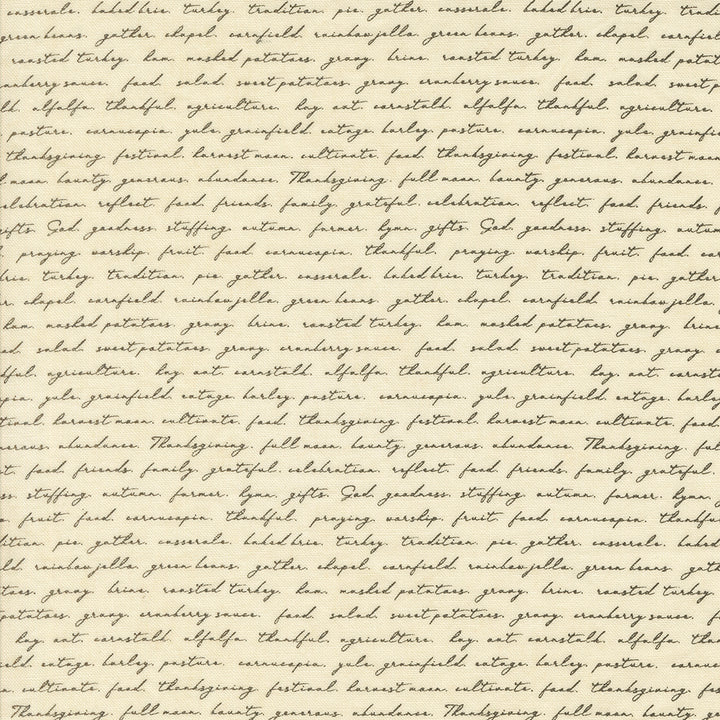 casserole. baked brie. turkey. tradition. pie. gather. casserole. baked brie. turkey.
green beans. gather. chapel. cornfield. rainbow jello. green beans. gather. chapel.
roasted turkey. ham. mashed potatoes. gravy. brine. roasted turkey. ham. mashed
cranberry sauce. food. salad. sweet potatoes. gravy. cranberry sauce. food. salad. sweet
alfalfa. thankful. agriculture. hay. oat. cornstalk. alfalfa. thankful. agriculture.
pasture. cornucopia. yule. grainfield. cottage. barley. pasture. cornucopia. yule.
thanksgiving. festival. harvest moon. cultivate. food. thanksgiving. festival. harvest moon
moon. bounty. generous. abundance. Thanksgiving. full moon. bounty. generous. abundance.
celebration. reflect. food. friends. family. grateful. celebration. reflect. food. friends.
gifts. God. goodness. stuffing. autumn. farmer. hymn. gifts. God. goodness. stuffing.
praying. worship. fruit. food. cornucopia. thankful. praying. worship. fruit. food.
turkey. tradition. pie. gather. casserole. baked brie. turkey. tradition. pie. gather.
chapel. cornfield. rainbow jello. green beans. gather. chapel. cornfield. rainbow jello.
ham. mashed potatoes. gravy. brine. roasted turkey. ham. mashed potatoes. gravy. brine
salad. sweet potatoes. gravy. cranberry sauce. food. salad. sweet potatoes. gravy.
agriculture. hay. oat. cornstalk. alfalfa. thankful. agriculture. hay. oat.
yule. grainfield. cottage. barley. pasture. cornucopia. yule. grainfield. cottage.
harvest moon. cultivate. food. thanksgiving. festival. harvest moon. cultivate. food.
abundance. Thanksgiving. full moon. bounty. generous. abundance. Thanksgiving.
food. friends. family. grateful. celebration. reflect. food. friends. family. grateful.
stuffing. autumn. farmer. hymn. gifts. God. goodness. stuffing. autumn. farmer. hymn.
fruit. food. cornucopia. thankful. praying. worship. fruit. food. cornucopia.
pie. gather. casserole. baked brie. turkey. tradition. pie. gather. casserole. baked
rainbow jello. green beans. gather. chapel. cornfield. rainbow jello. green beans.
gravy. brine. roasted turkey. ham. mashed potatoes. gravy. brine. roasted turkey.
potatoes. gravy. cranberry sauce. food. salad. sweet potatoes. gravy. cranberry sauce.
hay. oat. cornstalk. alfalfa. thankful. agriculture. hay. oat. cornstalk. alfalfa.
cottage. barley. pasture. cornucopia. yule. grainfield. cottage. barley. pasture.
cultivate. food. thanksgiving. festival. harvest moon. cultivate. food. thanksgiving.
Thanksgiving. full moon. bounty. generous. abundance. Thanksgiving. full moon. bounty.